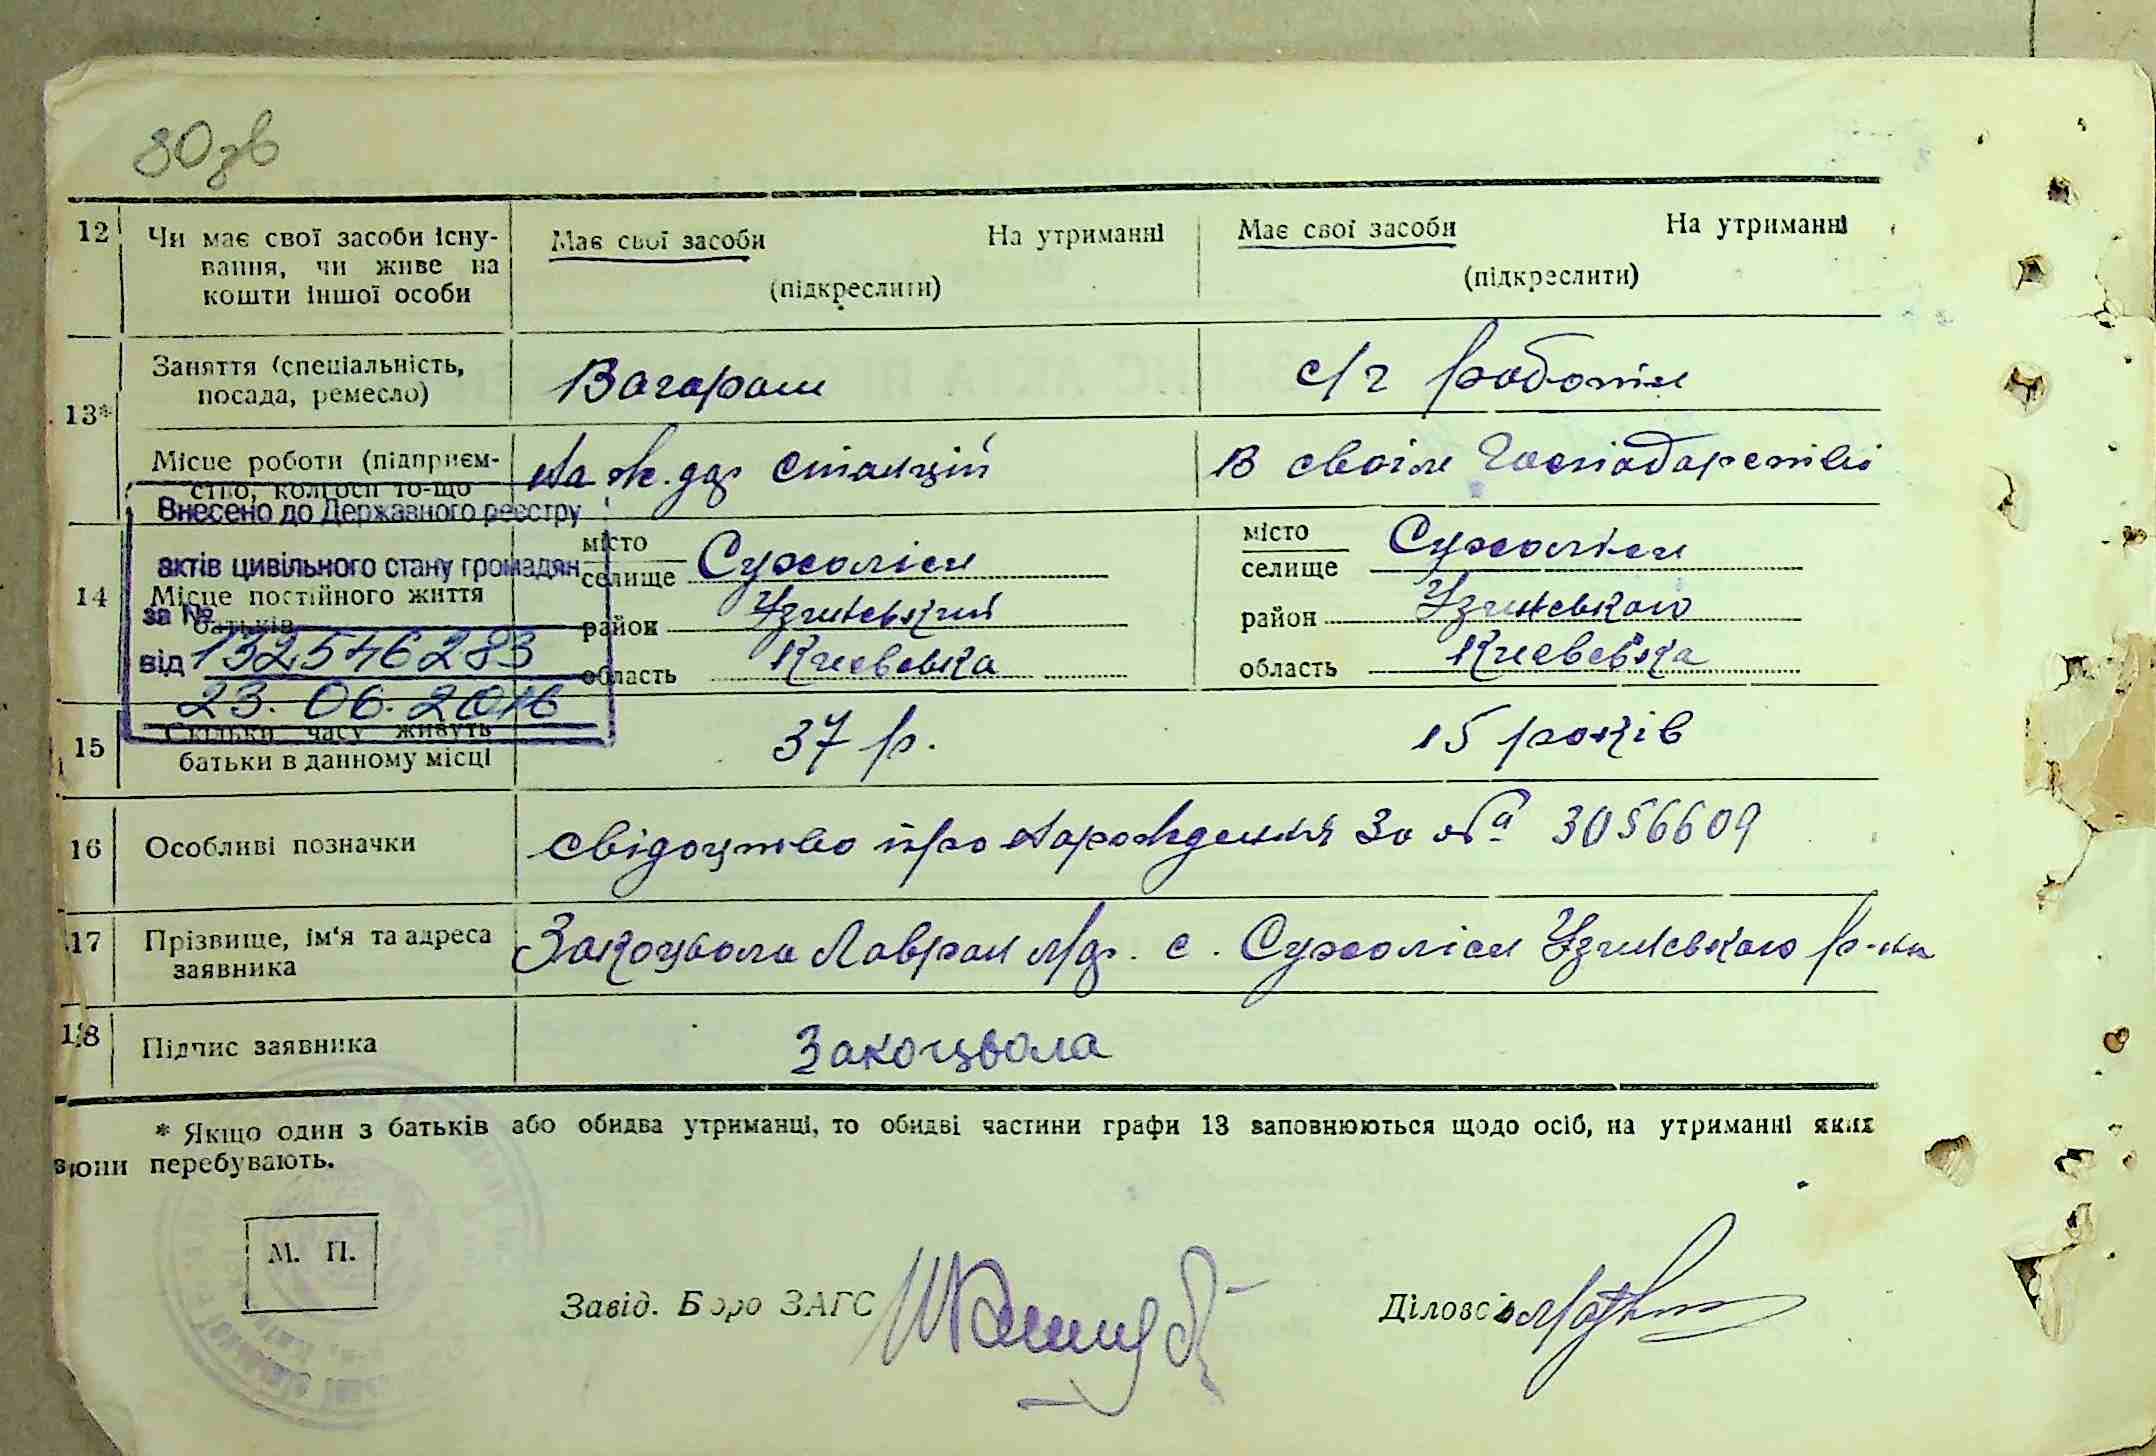 80зв
12 Чи має свої засоби існу- Має свої засоби На утриманні Має свої засоби На утриманні
вання, чи живе на (підкреслити) (підкреслити)
кошти іншої особи
13* Заняття (спеціальність, Вагаром с/г роботи
посада, ремесло)
Місце роботи (підприєм- На ж.дор станції В своїм господарстві
ство, колгосп то-що
Внесено до Державного реєстру
актів цивільного стану громадян
за №
від 132546283
23.06.2016
14 Місце постійного життя місто Сухоліси місто Сухоліси
батьків селище селище
район Узинський район Узинського
область Київська область Київська
15 Скільки часу живуть 37 р. 15 років
батьки в данному місці
16 Особливі позначки Свідоцтво про народження За № 3056609
17 Прізвище, ім'я та адреса Закоцвола Лаврон с. Сухоліси Узинського р-на
заявника
18 Підпис заявника Закоцвола
* Якщо один з батьків або обидва утриманці, то обидві частини графи 13 заповнюються щодо осіб, на утриманні яких
вони перебувають.
М. П.
Завід. Бюро ЗАГС Діловод